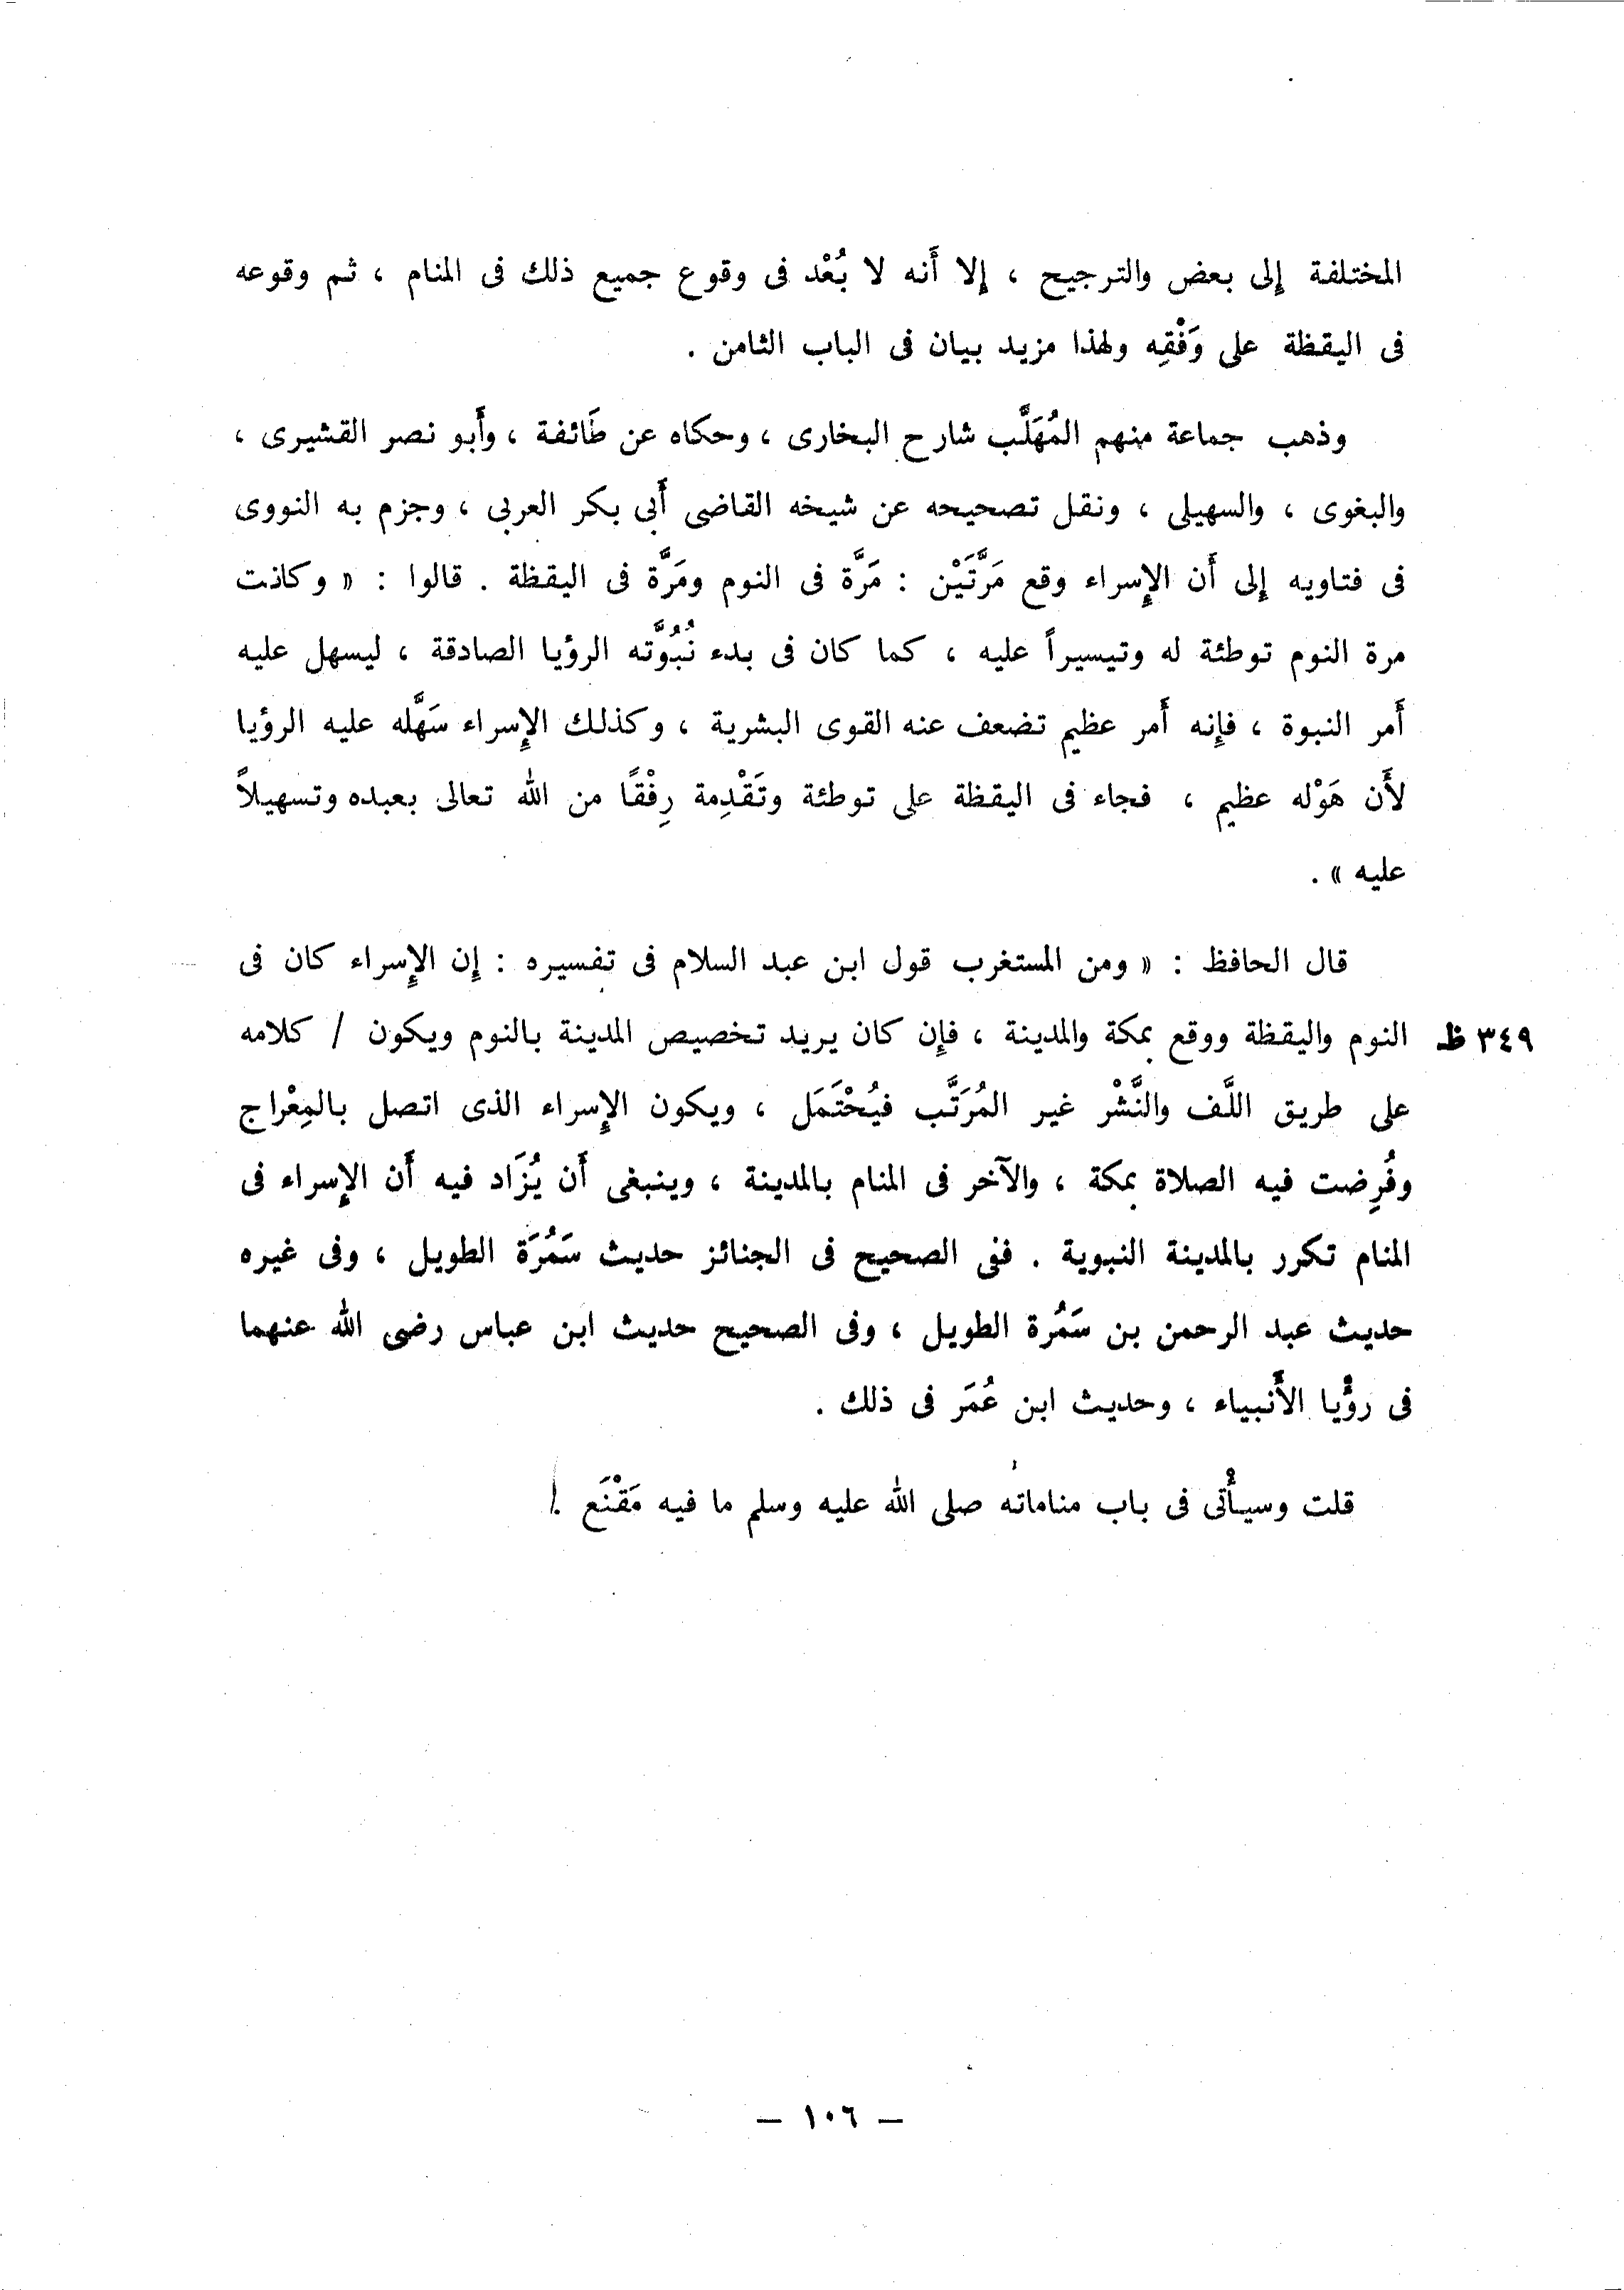 المختلفة إلى بعض والترجيح ، إلا أنه لا بُعْد فى وقوع جميع ذلك فى المنام ، ثم وقوعه
فى اليقظة على وَفْقِه ولهذا مزيد بيان فى الباب الثامن .
وذهب جماعة منهم المُهَلَّب شارح البخارى ، وحكاه عن طَائفة ، وأَبو نصر القشيرى ،
والبغوى ، والسهيلى ، ونقل تصحيحه عن شيخه القاضى أَبى بكر العربى ، وجزم به النووى
فى فتاويه إلى أَن الإسراء وقع مَرَّتَيْن : مَرَّة فى النوم ومَرَّة فى اليقظة . قالوا : « وكانت
مرة النوم توطئة له وتيسيراً عليه ، كما كان فى بدء نُبُوَّته الرؤيا الصادقة ، ليسهل عليه
أَمر النبوة ، فإنه أَمر عظيم تضعف عنه القوى البشرية ، وكذلك الإسراء سَهَّله عليه الرؤيا
لأَن هَوْله عظيم ، فجاء فى اليقظة على توطئة وتَقْدِمة رِفْقًا من الله تعالى بعبده وتسهيلاً
عليه » .
قال الحافظ : « ومن المستغرب قول ابن عبد السلام فى تفسيره : إن الإسراء كان فى
النوم واليقظة ووقع بمكة والمدينة ، فإن كان يريد تخصيص المدينة بالنوم ويكون / كلامه ٣٤٩ ظ
على طريق اللَّف والنَّشْر غير المُرَتَّب فيُحْتَمَل ، ويكون الإسراء الذى اتصل بالمِعْراج
وفُرِضت فيه الصلاة بمكة ، والآخر فى المنام بالمدينة ، وينبغى أَن يُزَاد فيه أَن الإسراء فى
المنام تكرر بالمدينة النبوية . ففى الصحيح فى الجنائز حديث سَمُرَة الطويل ، وفى غيره
حديث عبد الرحمن بن سَمُرة الطويل ، وفى الصحيح حديث ابن عباس رضى الله عنهما
فى رؤْيا الأَنبياء ، وحديث ابن عُمَر فى ذلك .
قلت وسيأْتى فى باب مناماته صلى الله عليه وسلم ما فيه مَقْنَع .
— ١٠٦ —